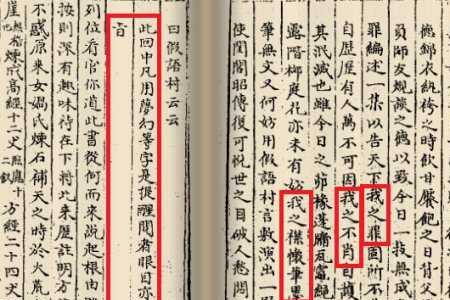 德錦衣紈袴之時飫甘饜肥之日背父
師友規談之德以致今日一技無成
罪編述一集以告天下我之罪固所不
自歷歷有人萬不可因我之不肖自護
其泯滅也雖今日之茆椽蓬牖瓦
露階柳庭花亦未有妨我之襟懷筆墨
筆無文又何妨用假語村言敷演出一
使閨閣昭傳復可悅世之目破人愁悶
曰假語村云云
此回中凡用夢幻等字是提醒閱者眼目亦
旨
列位看官你道此書從何而來說起根由
按則深有趣味待在下將此來歷註明方
不惑原來女媧氏煉石補天之時於大荒
崖煉成高經十二丈方經二十四丈